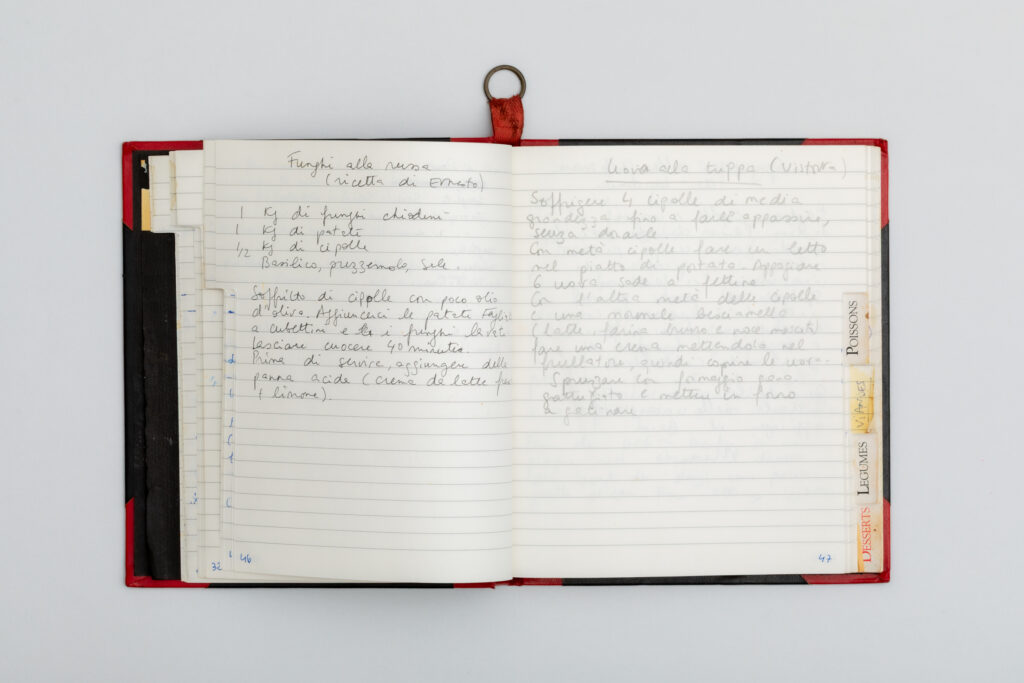 Funghi alla russa
(ricetta di Ernesto)
1 Kg di funghi chiodini
1 Kg di patate
1/2 Kg di cipolle
Basilico, prezzemolo, Sale.
Soffritto di cipolle con poco olio
d'oliva. Aggiungerci le patate
a cubettini e i funghi lavati
lasciare cuocere 40 minuti.
Prima di servire, aggiungere della
panna acida (crema da latte
1 limone).
32
46
Uova alla trippa
Soffriggere 4 cipolle di media
grandezza fino a farle appassire,
senza dorarle
Con metà cipolle fare un letto
nel piatto di portata. Appoggiare
6 uova sode a fettine
Con l'altra metà delle cipolle
e una normale besciamella
(latte, farina burro e noce moscata)
fare una crema mettendola nel
frullatore, quindi coprire le uova.
Spruzzare con formaggio
grattugiato e mettere in forno
a gratinare
47
POISSONS
VIANDES
LEGUMES
DESSERTS